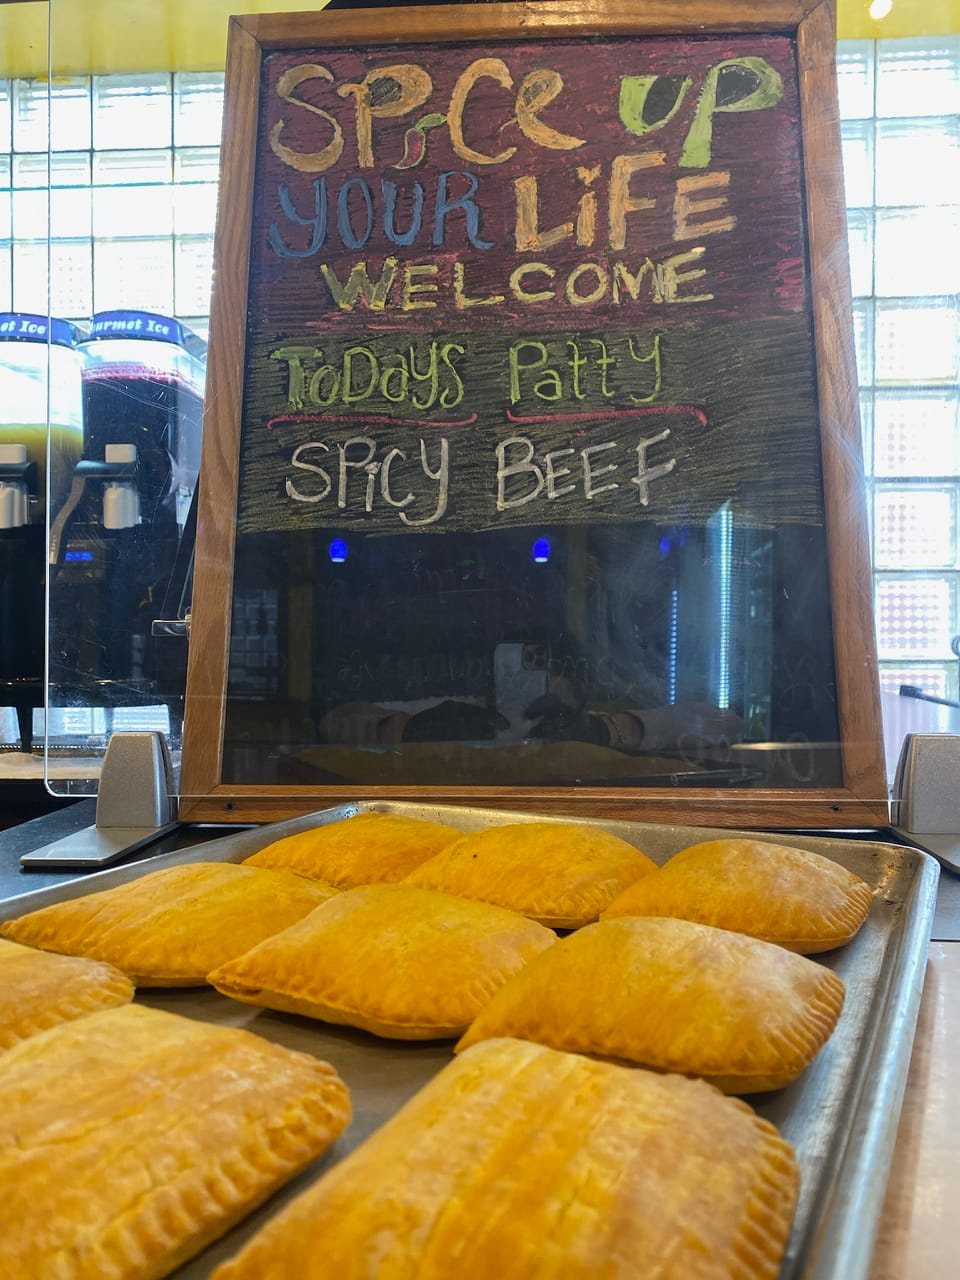 SPiCe UP
YOUR LiFE
WELCOME
ToDayS Patty
SPiCY BEEF
et Ice
urmet Ice